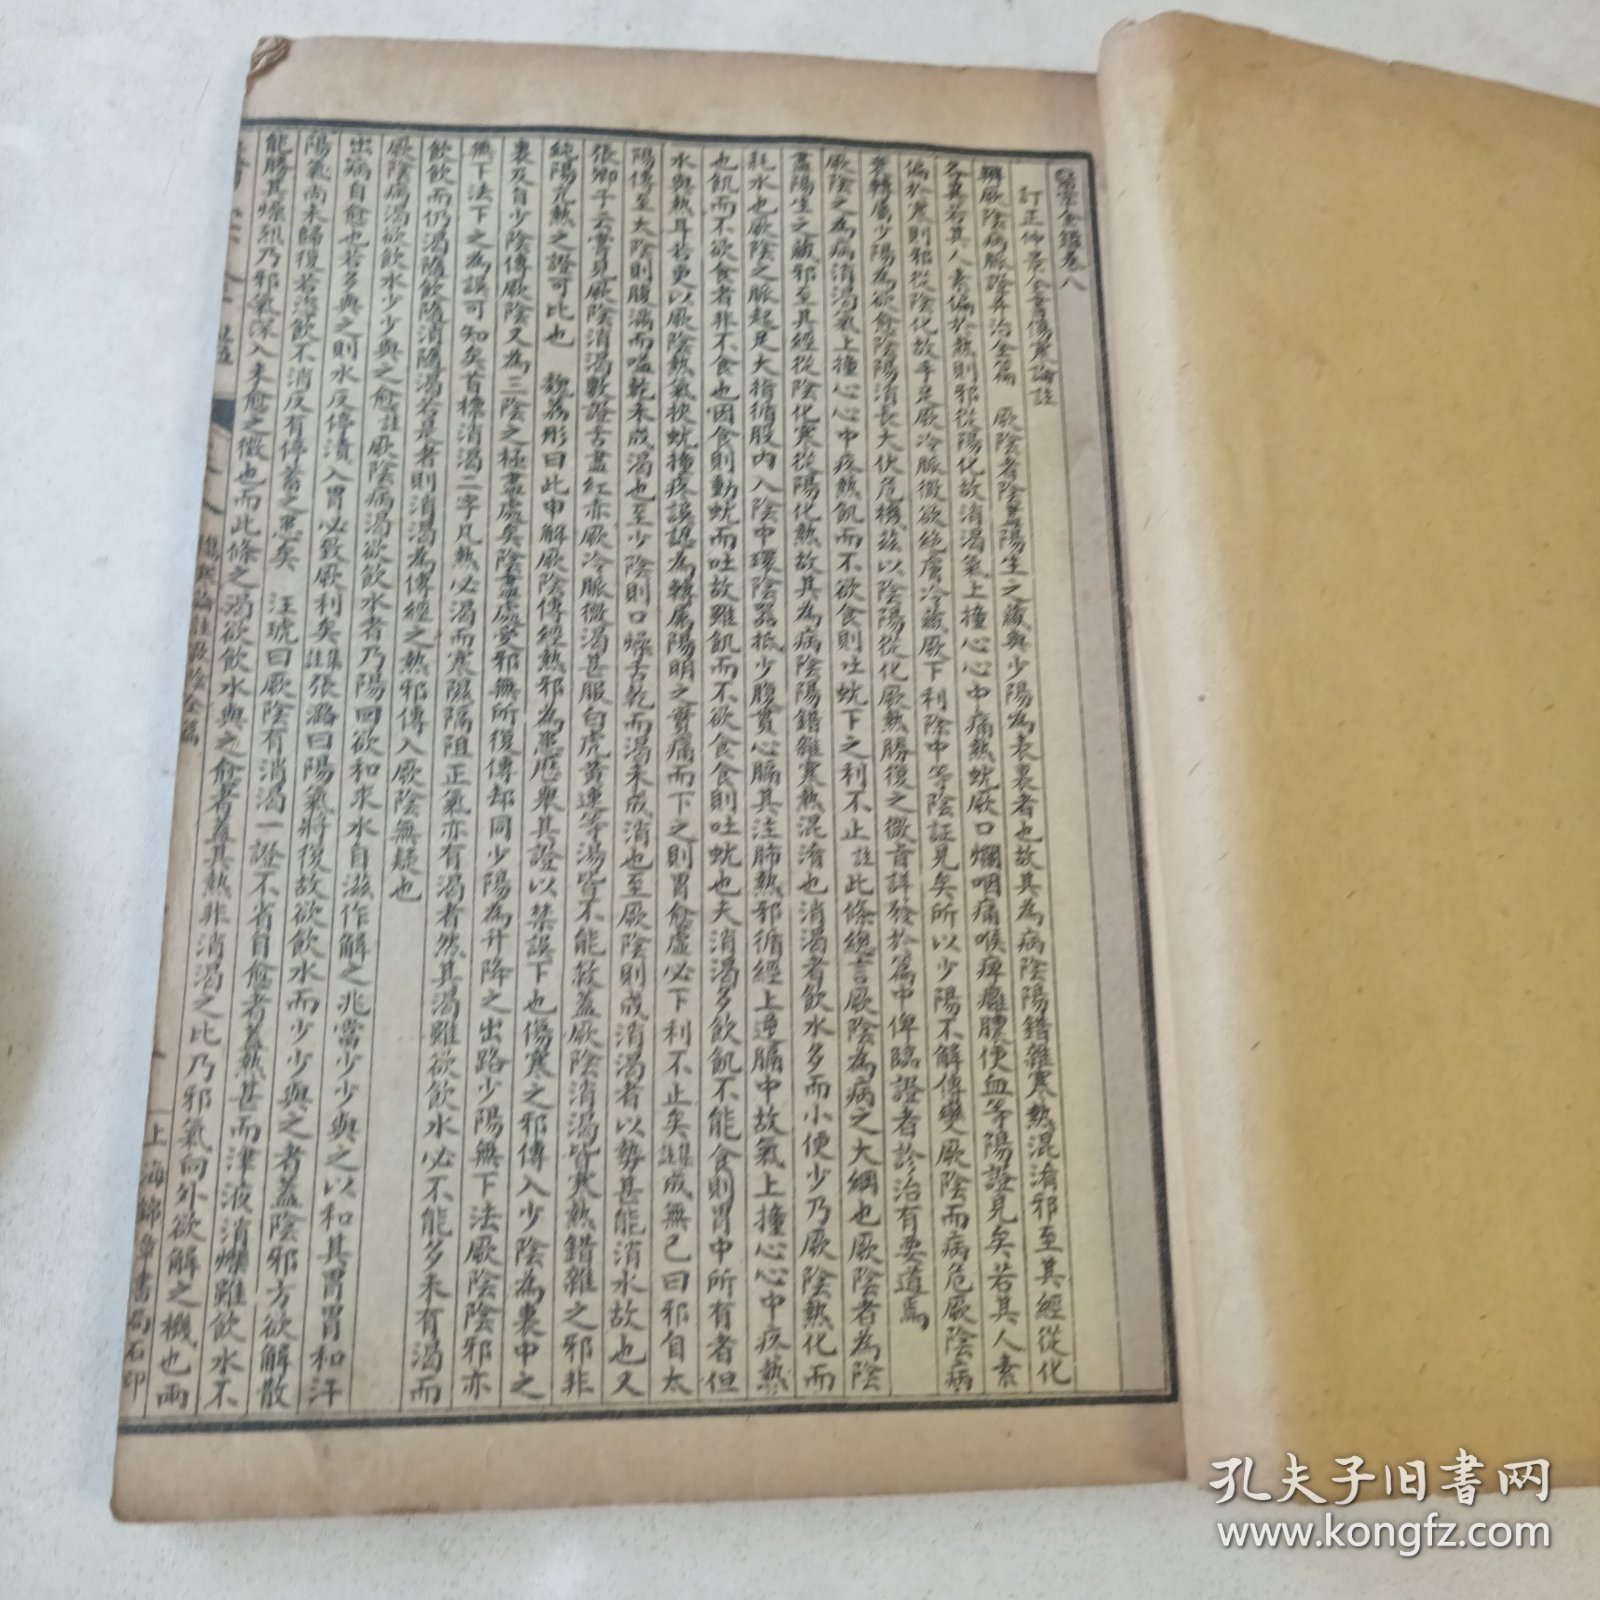 醫宗金鑑卷八
訂正仲景全書傷寒論註
辨厥陰病脈證并治全篇　厥陰者陰盡陽生之藏與少陽為表裏者也故其為病陰陽錯雜寒熱混淆邪至其經從化
各異若其人素偏於熱則邪從陽化故消渴氣上撞心心中痛熱蛇厥口爛咽痛喉痺癰膿便血等陽證見矣若其人素
偏於寒則邪從陰化故手足厥冷脈微欲絕膚冷藏厥下利除中等陰証見矣所以少陽不解傳變厥陰而病危厥陰病
衰轉屬少陽為欲愈陰陽消長大伏危機茲以陰陽從化厥熱勝復之微旨詳發於篇中俾臨證者診治有要道焉
厥陰之為病消渴氣上撞心心中疼熱飢而不欲食食則吐蚘下之利不止註此條總言厥陰為病之大綱也厥陰者為陰
盡陽生之藏邪至其經從陰化寒從陽化熱故其為病陰陽錯雜寒熱混淆也消渴者飲水多而小便少乃厥陰熱化而
耗水也厥陰之脈起足大指循股內入陰中環陰器抵少腹貫心膈其注肺熱邪循經上逆膈中故氣上撞心心中疼熱
也飢而不欲食者非不食也因食則動蚘而吐故雖飢而不欲食食則吐蚘也夫消渴多飲飢不能食則胃中所有者但
水與熱耳若更以厥陰熱氣挾蚘撞疼誤認為轉屬陽明之實痛而下之則胃愈虛必下利不止矣註成無己曰邪自太
陽傳至太陰則腹滿而嗌乾未成渴也至少陰則口燥舌乾而渴未成消也至厥陰則成消渴者以勢甚能消水故也又
張卿子云嘗見厥陰消渴數證舌盡紅赤厥冷脈微渴甚服白虎黃連等湯皆不能救蓋厥陰消渴皆寒熱錯雜之邪非
純陽亢熱之證可比也　魏荔彤曰此申解厥陰傳經熱邪為患歷舉其證以禁誤下也傷寒之邪傳入少陰為裏中之
裏及自少陰傳厥陰又為三陰之極盡處矣陰盡處受邪無所復傳却同少陽為升降之出路少陽無下法厥陰陰邪亦
無下法下之為誤可知矣首標消渴二字凡熱必渴而寒濕隔阻正氣亦有渴者然其渴雖欲飲水必不能多未有渴而
飲飲而仍渴隨飲隨消隨渴若是者則消渴為傳經之熱邪傳入厥陰無疑也
厥陰病渴欲飲水少少與之愈註厥陰病渴欲飲水者乃陽回欲和求水自滋作解之兆當少少與之以和其胃胃和汗
出病自愈也若多與之則水反停漬入胃必致厥利矣註張潞曰陽氣將復故欲飲水而少少與之者蓋陰邪方欲解散
陽氣尚未歸復若恣飲不消反有停蓄之患矣　汪琥曰厥陰有消渴一證不省自愈者蓋熱甚而津液消爍雖飲水不
能勝其燥烈乃邪氣深入未愈之徵也而此條之渴欲飲水與之愈者蓋其熱非消渴之比乃邪氣向外欲解之機也兩
傷寒論註厥陰全篇
上海錦章書局石印
孔夫子旧书网
www.kongfz.com